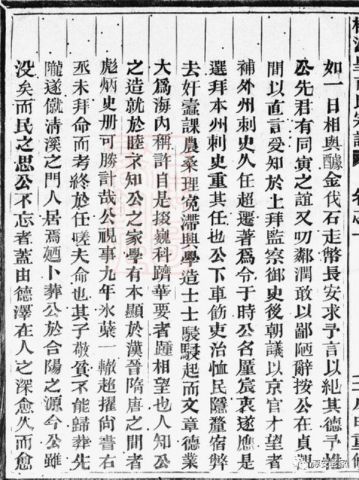 如一日相與醵金伐石走幣長安求予言以紀其德予
公先君有同寅之誼又叨鄰潤敢以鄙陋辭按公在貞
間以直言受知於上拜監察御史後朝議以京官才望者
補外州刺史久任超遷著為令于時公名屢宸衷遂應是
選拜本州刺史重其任也公下車飭吏治恤民隱釐宿弊
去奸蠹課農桑理冤滯興學造士士駸駸起而文章德業
大為海內稱許自是掇巍科躋華要者踵相望也人知公
之造就於睦不知公之家學有本顯於漢晉隋唐之間者
彪炳史册可勝計哉公視事九年氷蘖一轍超擢尚書右
丞未拜命而考終於任嗟夫命也其子敬貧不能歸葬先
隴遂僦清溪之門人居焉廼卜葬公於合陽之源今公雖
没矣而民之思公不忘者蓋由德澤在人之深愈久而愈